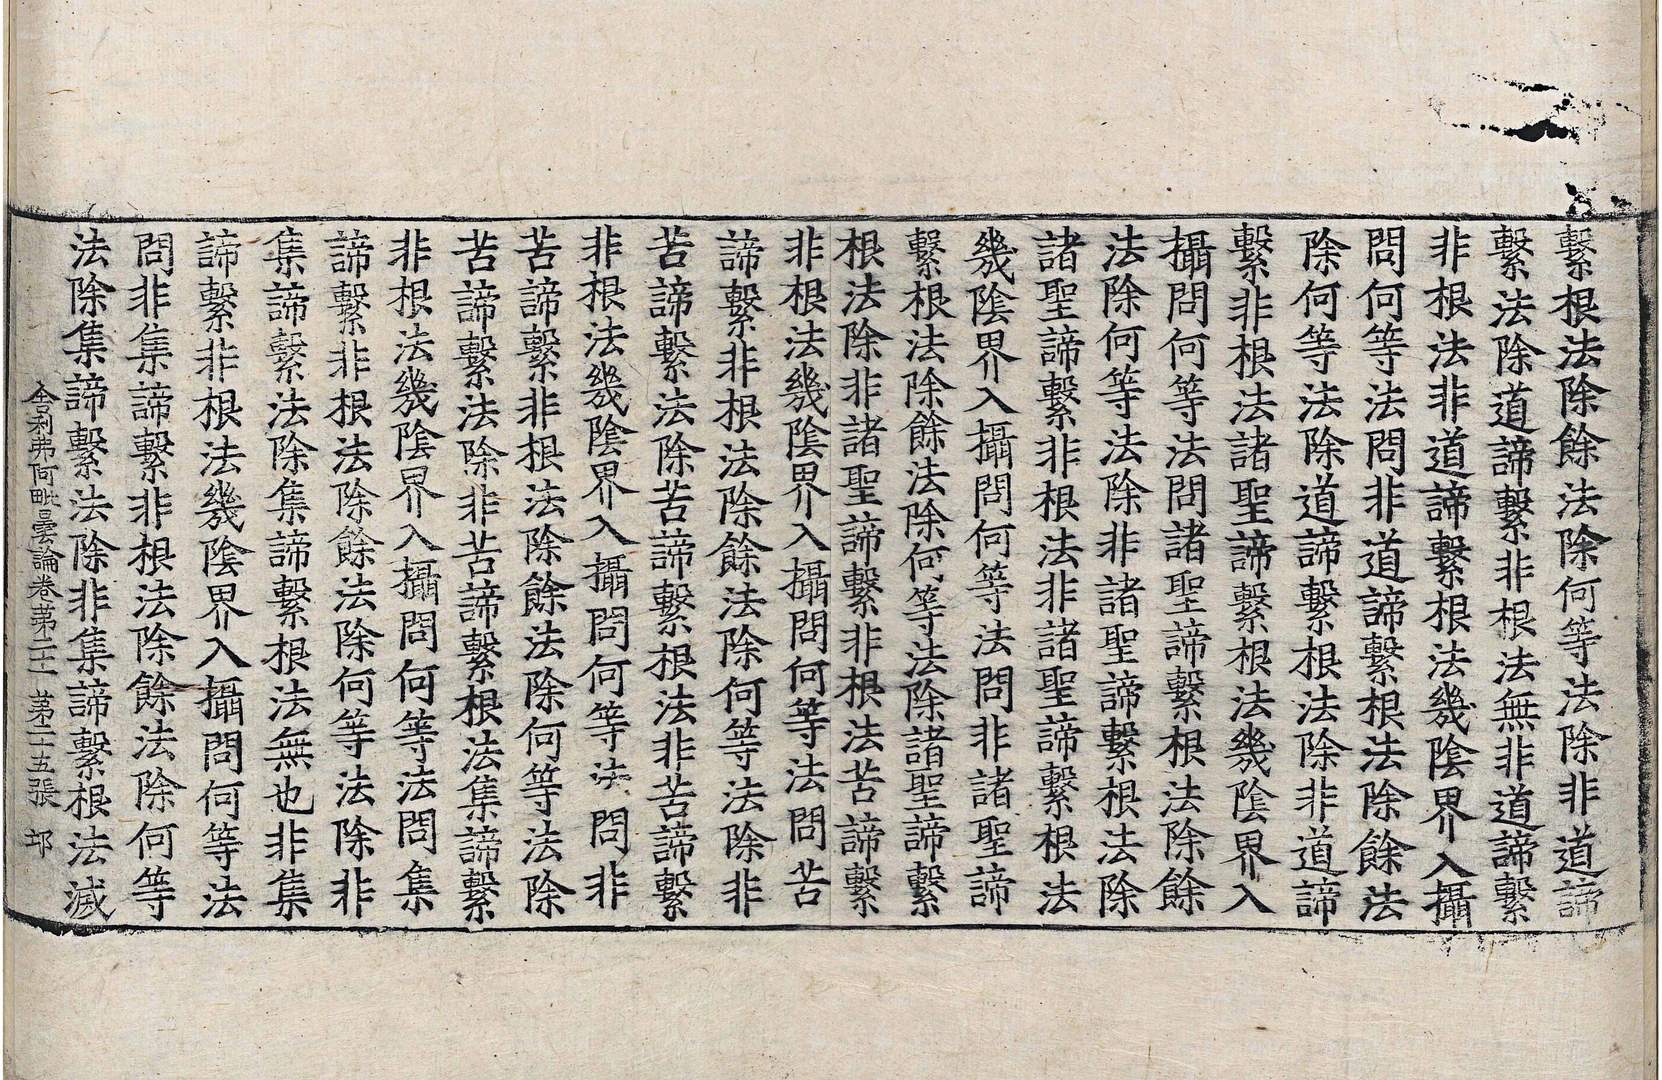 繫根法除餘法除何等法除非道諦
繫法除道諦繫非根法無非道諦繫
非根法非道諦繫根法幾陰界入攝
問何等法問非道諦繫根法除餘法
除何等法除道諦繫根法除非道諦
繫非根法諸聖諦繫根法幾陰界入
攝問何等法問諸聖諦繫根法除餘
法除何等法除非諸聖諦繫根法除
諸聖諦繫非根法非諸聖諦繫根法
幾陰界入攝問何等法問非諸聖諦
繫根法除餘法除何等法除諸聖諦繫
根法除非諸聖諦繫非根法苦諦繫
非根法幾陰界入攝問何等法問苦
諦繫非根法除餘法除何等法除非
苦諦繫法除苦諦繫根法非苦諦繫
非根法幾陰界入攝問何等法問非
苦諦繫非根法除餘法除何等法除
苦諦繫法除非苦諦繫根法集諦繫
非根法幾陰界入攝問何等法問集
諦繫非根法除餘法除何等法除非
集諦繫法除集諦繫根法無也非集
諦繫非根法幾陰界入攝問何等法
問非集諦繫非根法除餘法除何等
法除集諦繫法除非集諦繫根法滅
舍利弗阿毗曇論卷苐二十一 苐二十五張